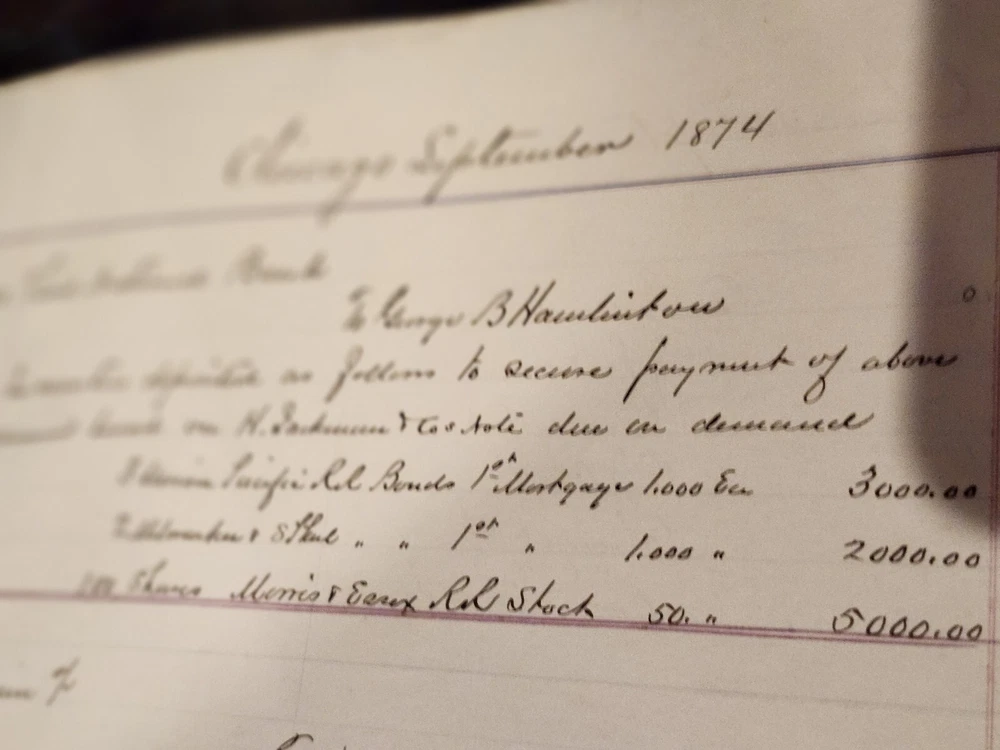 Chicago September 1874
Bank
To George B Hamlinton
as follows to secure payment of above
on H. & Cos Note due on demand
Pacific RR Bonds 1st Mortgage 1.000 Ea 3000.00
& St Paul " " 1st " 1.000 " 2000.00
100 Shares Morris & Essex RR Stock 50. " 5000.00